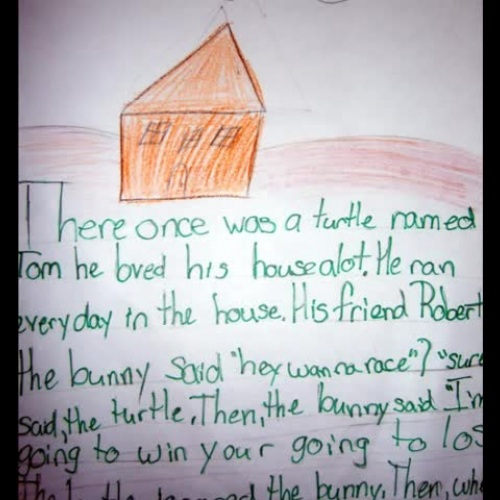 There once was a turtle named
Tom he loved his house alot. He ran
everyday in the house. His friend Robert
the bunny said "hey wanna race"? "sure
said, the turtle. Then, the bunny said "I'm
going to win your going to los
the bunny. Then, whe